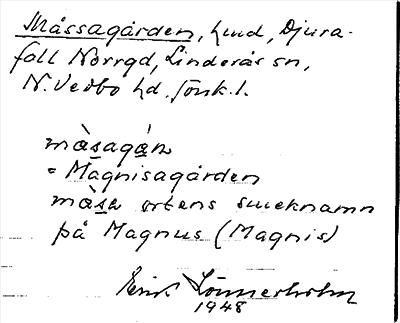 Måssagården, hmd, Djura-
fall Norrgd, Linderås sn,
N. Vedbo hd. Jönk. l.
màsagán
= Magnisagården
màsa ortens smeknamn
på Magnus (Magnis)
Erik Lönnerholm
1948